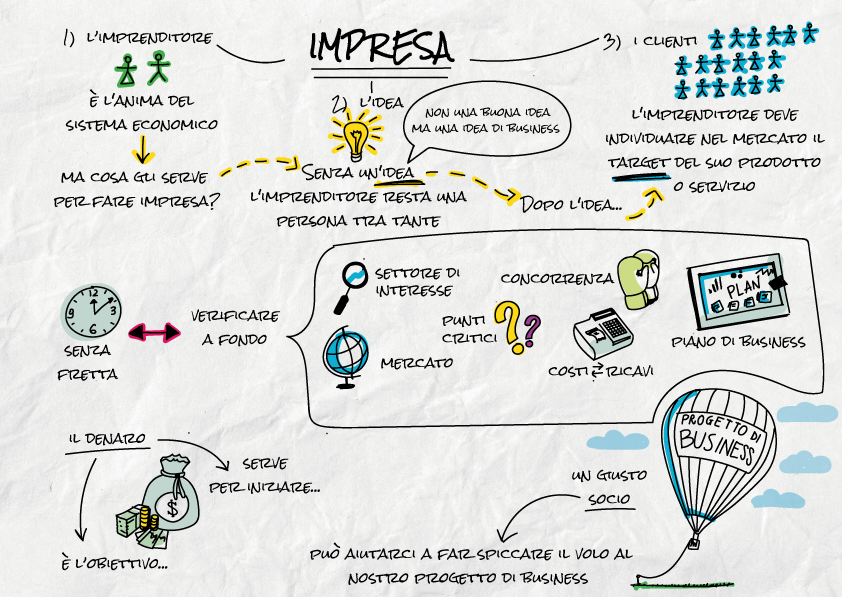 IMPRESA
1) L'IMPRENDITORE
È L'ANIMA DEL
SISTEMA ECONOMICO
MA COSA GLI SERVE
PER FARE IMPRESA?
2) L'IDEA
NON UNA BUONA IDEA
MA UNA IDEA DI BUSINESS
SENZA UN'IDEA
L'IMPRENDITORE RESTA UNA
PERSONA TRA TANTE
DOPO L'IDEA...
3) I CLIENTI
L'IMPRENDITORE DEVE
INDIVIDUARE NEL MERCATO IL
TARGET DEL SUO PRODOTTO
O SERVIZIO
12
3
6
9
SENZA
FRETTA
VERIFICARE
A FONDO
SETTORE DI
INTERESSE
MERCATO
PUNTI
CRITICI
??
CONCORRENZA
COSTI ⇄ RICAVI
PLAN
PIANO DI BUSINESS
IL DENARO
SERVE
PER INIZIARE...
$
È L'OBIETTIVO...
PROGETTO DI
BUSINESS
UN GIUSTO
SOCIO
PUÒ AIUTARCI A FAR SPICCARE IL VOLO AL
NOSTRO PROGETTO DI BUSINESS